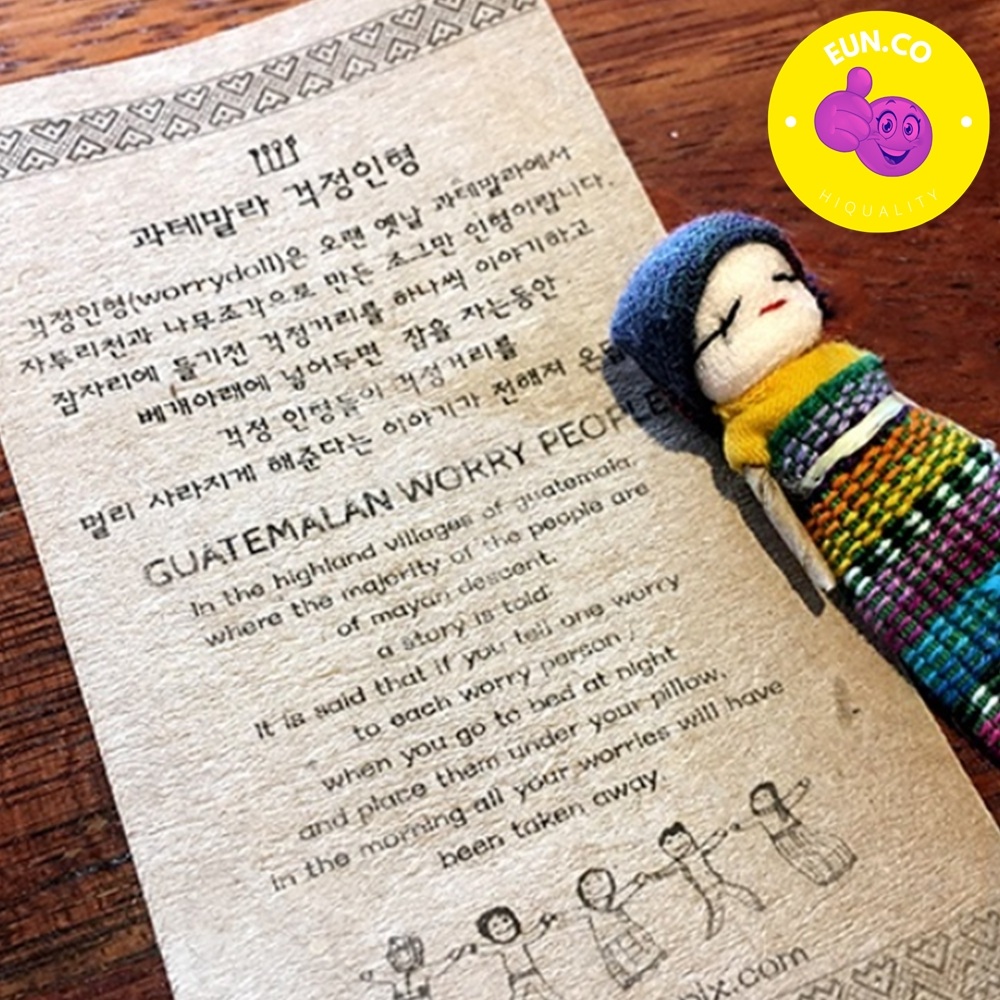 EUN.CO
HIQUALITY
과테말라 걱정인형
걱정인형(worrydoll)은 오랜 옛날 과테말라에서
자투리천과 나무조각으로 만든 조그만 인형이랍니다.
잠자리에 들기전 걱정거리를 하나씩 이야기하고
베개아래에 넣어두면 잠을 자는동안
걱정 인형들이 걱정거리를
멀리 사라지게 해준다는 이야기가 전해져
GUATEMALAN WORRY PEOPLE
In the highland villages of guatemala,
where the majority of the people are
of mayan descent,
a story is told:
It is said that if you tell one worry
to each worry person,
when you go to bed at night
and place them under your pillow,
in the morning all your worries will have
been taken away.